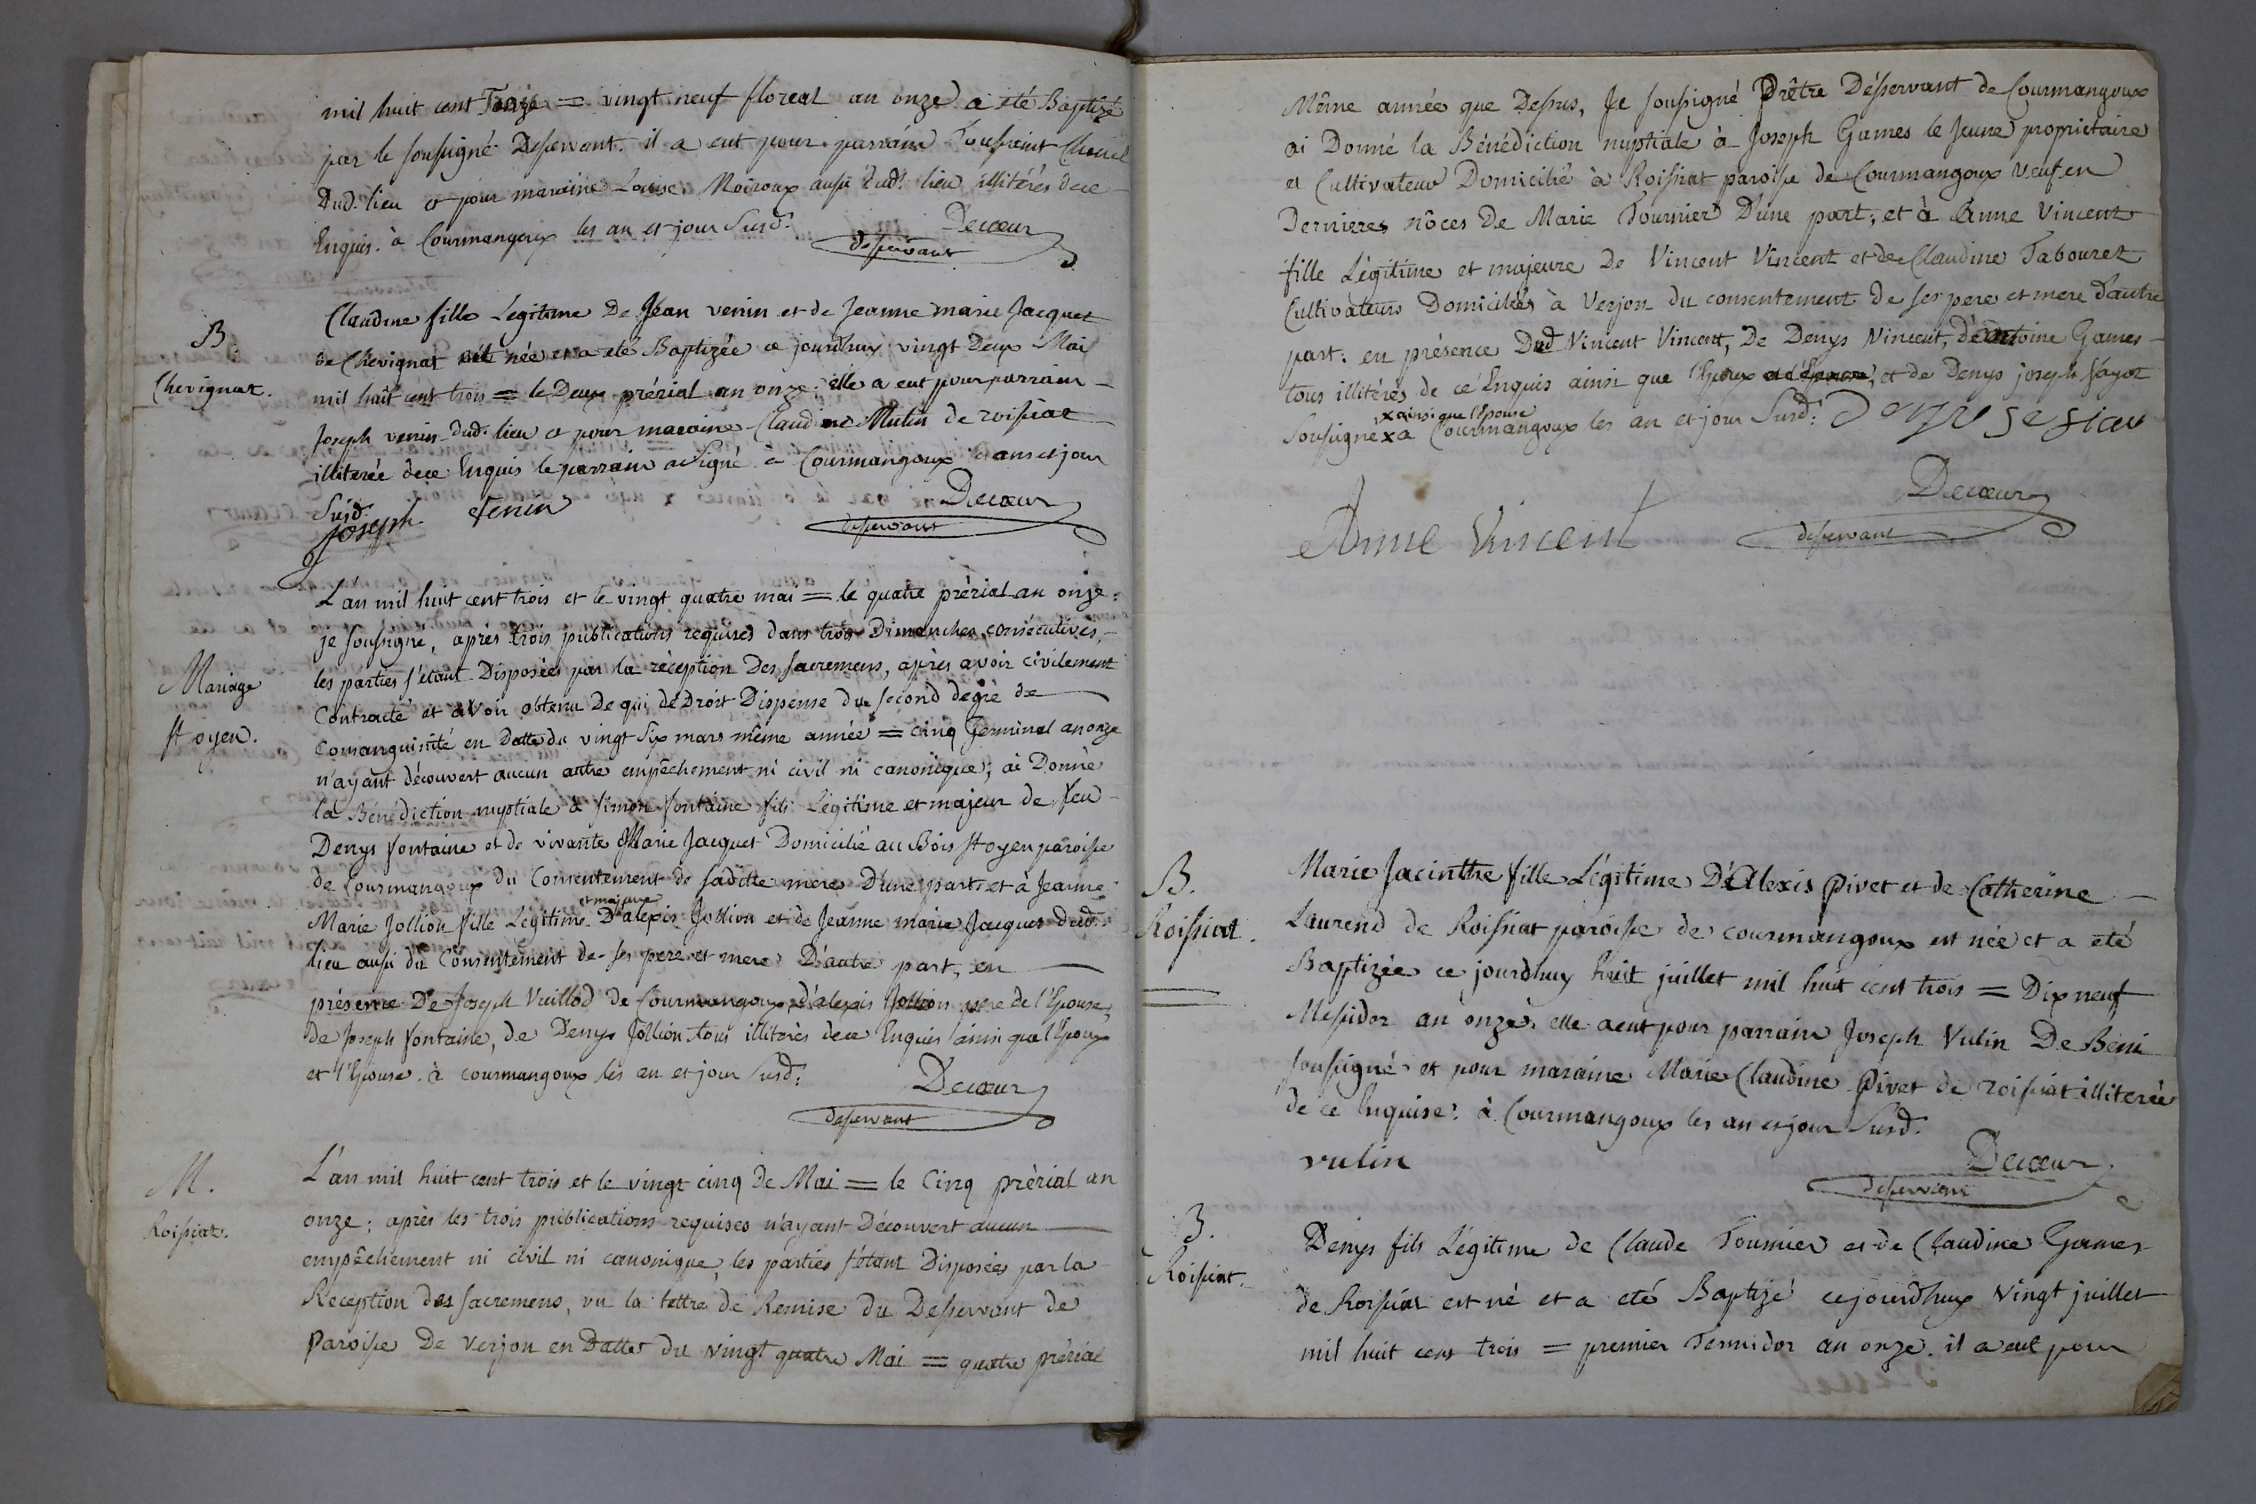 mil huit cent = vingt neuf floreal an onze a eté Baptizé
par le soussigné Desservant. il a eut pour parrain Toussaint
Dud. lieu et pour maraine Louise Moiroux aussi dud. lieu illitérés dece
Enquis. à Courmangoux les an et jour Susd.
Decœur
desservant
B.
Chevignat.
Claudine fille Legitime De Jean venin et de Jeanne marie Jacquet
de Chevignat est née et a eté Baptizée ce jourdhuy vingt Deux Mai
mil huit cent trois = le Deux prérial an onze; elle a eut pour parrain
Joseph venin dud. lieu et pour maraine Claudine Mutin de roissiat
illiterée dece Enquis le parrain a signé a Courmangoux an et jour
Susd.
Joseph venin
Decœur
desservant
Mariage
st oyen.
L'an mil huit cent trois et le vingt quatre mai = le quatre prérial an onze:
je soussigné, aprés trois publications requises dans trois Dimanches consécutives,
les parties s'étant Disposées par la réception Des sacremens, aprés avoir civilement
Contracté et avoir obtenu De qui de Droit Dispense du second degré de
Consanguinité en Datte du vingt Six mars même année = cinq Germinal an onze
n'ayant découvert aucun autre empêchement ni civil ni canonique; ai Donné
la Bénédiction nuptiale à simon fontaine fils Légitime et majeur de feu
Denys fontaine et de vivante Marie Jacquet Domicilié au Bois st oyen paroisse
de Courmangoux du Consentement de saditte mere D'une part, et à Jeanne
Marie Jollion fille Légitime et majeure D'alexis Jollion et de Jeanne marie Jacquet dud.
lieu aussi du Consentement de ses pere et mere D'autre part, en
présence De Joseph Vuillod de Courmangoux, d'alexis Jollion pere de l'Epouse,
de Joseph fontaine, de Denys Jollion tous illiterés dece Enquis ainsi que l'Epoux
et l'Epouse. à courmangoux les an et jour susd.
Decœur
desservant
M.
Roissiat.
L'an mil huit cent trois et le vingt cinq de Mai = le Cinq prérial an
onze; aprés les trois publications requises n'ayant Découvert aucun
empêchement ni civil ni canonique, les parties s'étant Disposées par la
Reception des sacremens, vu la lettre de Remise du Desservant de
Paroisse De Verjon en Datte du vingt quatre Mai = quatre prérial
Même année que Dessus, Je soussigné Prêtre Désservant de Courmangoux
ai Donné la Bénédiction nuptiale à Joseph Games le Jeune proprietaire
et Cultivateur Domicilié à Roissiat paroisse de Courmangoux Veuf en
Dernieres nôces De Marie Fournier D'une part; et à Anne Vincent
fille Légitime et majeure De Vincent Vincent et de Claudine Tabouret
Cultivateurs Domiciliés à Verjon du consentement de ses pere et mere d'autre
part: en présence Dud Vincent Vincent, De Denys Vincent, d'Antoine Games
tous illitérés de ce Enquis ainsi que l'Epoux et de Denys joseph
Soussigné x ainsi que l'Epouse x a Courmangoux les an et jour Susd.
Anne Vincent
Decœur
desservant
B.
Roissiat.
Marie Jacinthe fille Légitime D'Alexis Pivet et de Catherine
Laurend de Roissiat paroisse de courmangoux est née et a eté
Baptizée ce jourdhuy huit juillet mil huit cent trois = Dix neuf
Messidor an onze. elle a eut pour parrain Joseph Vulin De Beni
soussigné et pour maraine Marie Claudine Pivet de roissiat illiterée
de ce Enquise. à Courmangoux les an et jour Susd.
vulin
Decœur
desservant
B.
Roissiat.
Denys fils Légitime de Claude Fournier et de Claudine Games
de Roissiat est né et a eté Baptizé cejourdhuy Vingt juillet
mil huit cent trois = premier Termidor an onze. il a eut pour